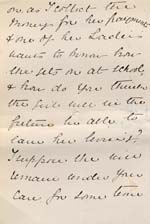 on as I collect the
money for her payments
& one of her Ladies
wants to know how
she gets on at school,
& how do you think
she will in the
future be able to
earn her living?
I suppose she will
remain under your
care for some time